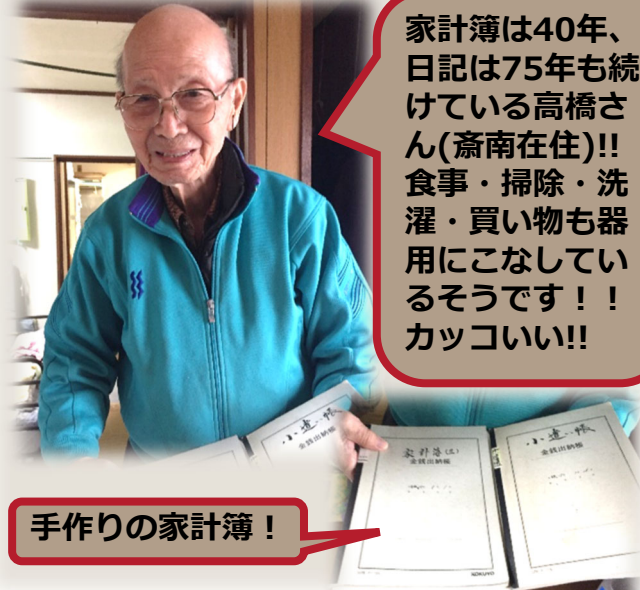 家計簿は40年、
日記は75年も続
けている高橋さ
ん(斎南在住)!!
食事・掃除・洗
濯・買い物も器
用にこなしてい
るそうです！！
カッコいい!!
小遣い帳
金銭出納帳
家計簿(三)
金銭出納帳
小遣い帳
金銭出納帳
KOKUYO
手作りの家計簿！